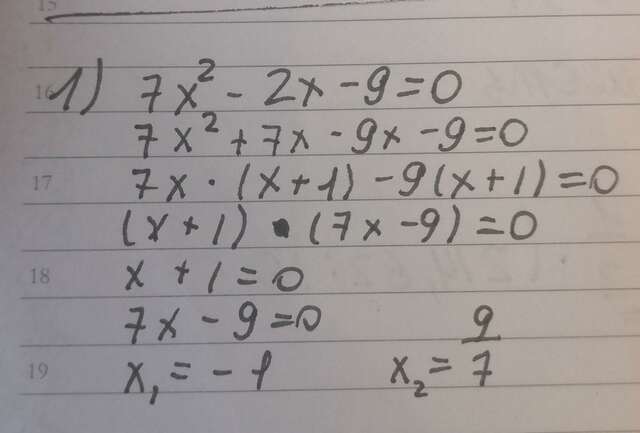 15
16 1) 7x² - 2x - 9 = 0
7x² + 7x - 9x - 9 = 0
17 7x · (x + 1) - 9(x + 1) = 0
(x + 1) · (7x - 9) = 0
18 x + 1 = 0
7x - 9 = 0
19 x₁ = -1 x₂ = 9/7